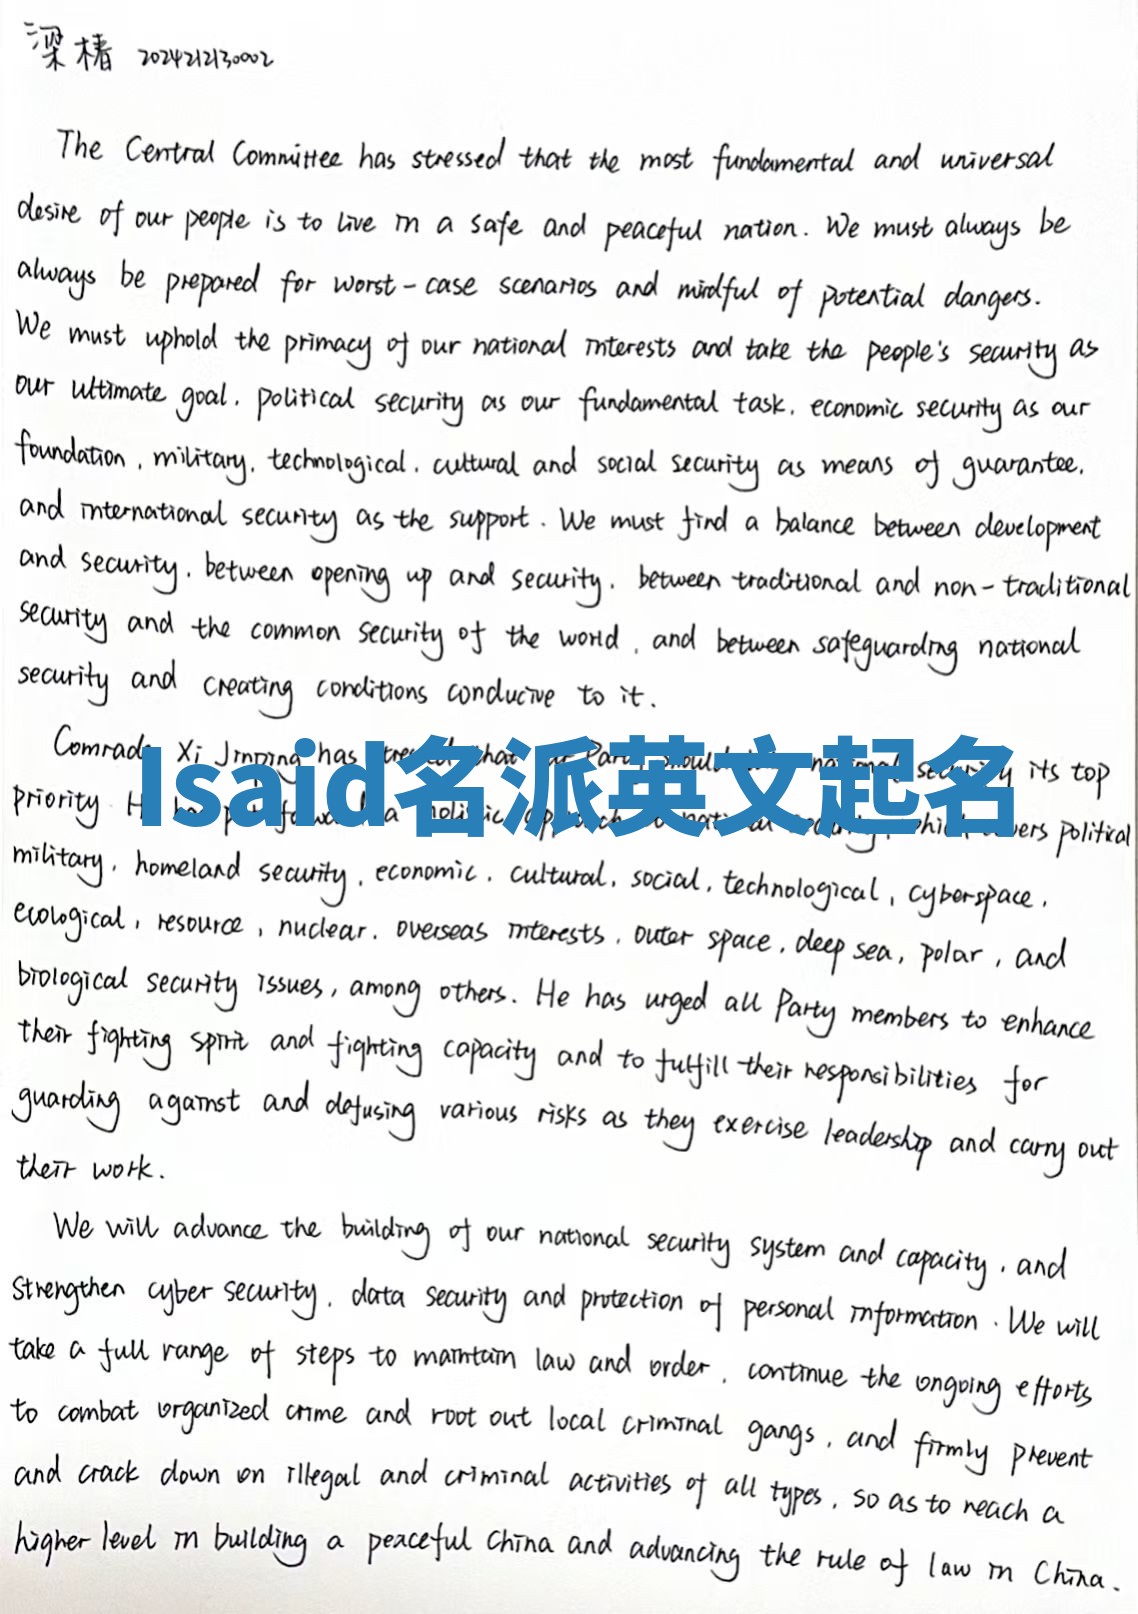 梁椿 2024212130002
The Central Committee has stressed that the most fundamental and universal
desire of our people is to live in a safe and peaceful nation. We must always be
always be prepared for worst-case scenarios and mindful of potential dangers.
We must uphold the primacy of our national interests and take the people's security as
our ultimate goal, political security as our fundamental task, economic security as our
foundation, military, technological, cultural and social security as means of guarantee,
and international security as the support. We must find a balance between development
and security, between opening up and security, between traditional and non-traditional
security and the common security of the world, and between safeguarding national
security and creating conditions conducive to it.
Comrade Xi Jinping has that Party should national security its top
priority He has put forward a holistic approach national security, which covers political
Isaid名派英文起名
military, homeland security, economic, cultural, social, technological, cyberspace,
ecological, resource, nuclear, overseas interests, outer space, deep sea, polar, and
biological security issues, among others. He has urged all Party members to enhance
their fighting spirit and fighting capacity and to fulfill their responsibilities for
guarding against and defusing various risks as they exercise leadership and carry out
their work.
We will advance the building of our national security system and capacity, and
strengthen cyber security, data security and protection of personal information. We will
take a full range of steps to maintain law and order, continue the ongoing efforts
to combat organized crime and root out local criminal gangs, and firmly prevent
and crack down on illegal and criminal activities of all types, so as to reach a
higher level in building a peaceful China and advancing the rule of law in China.